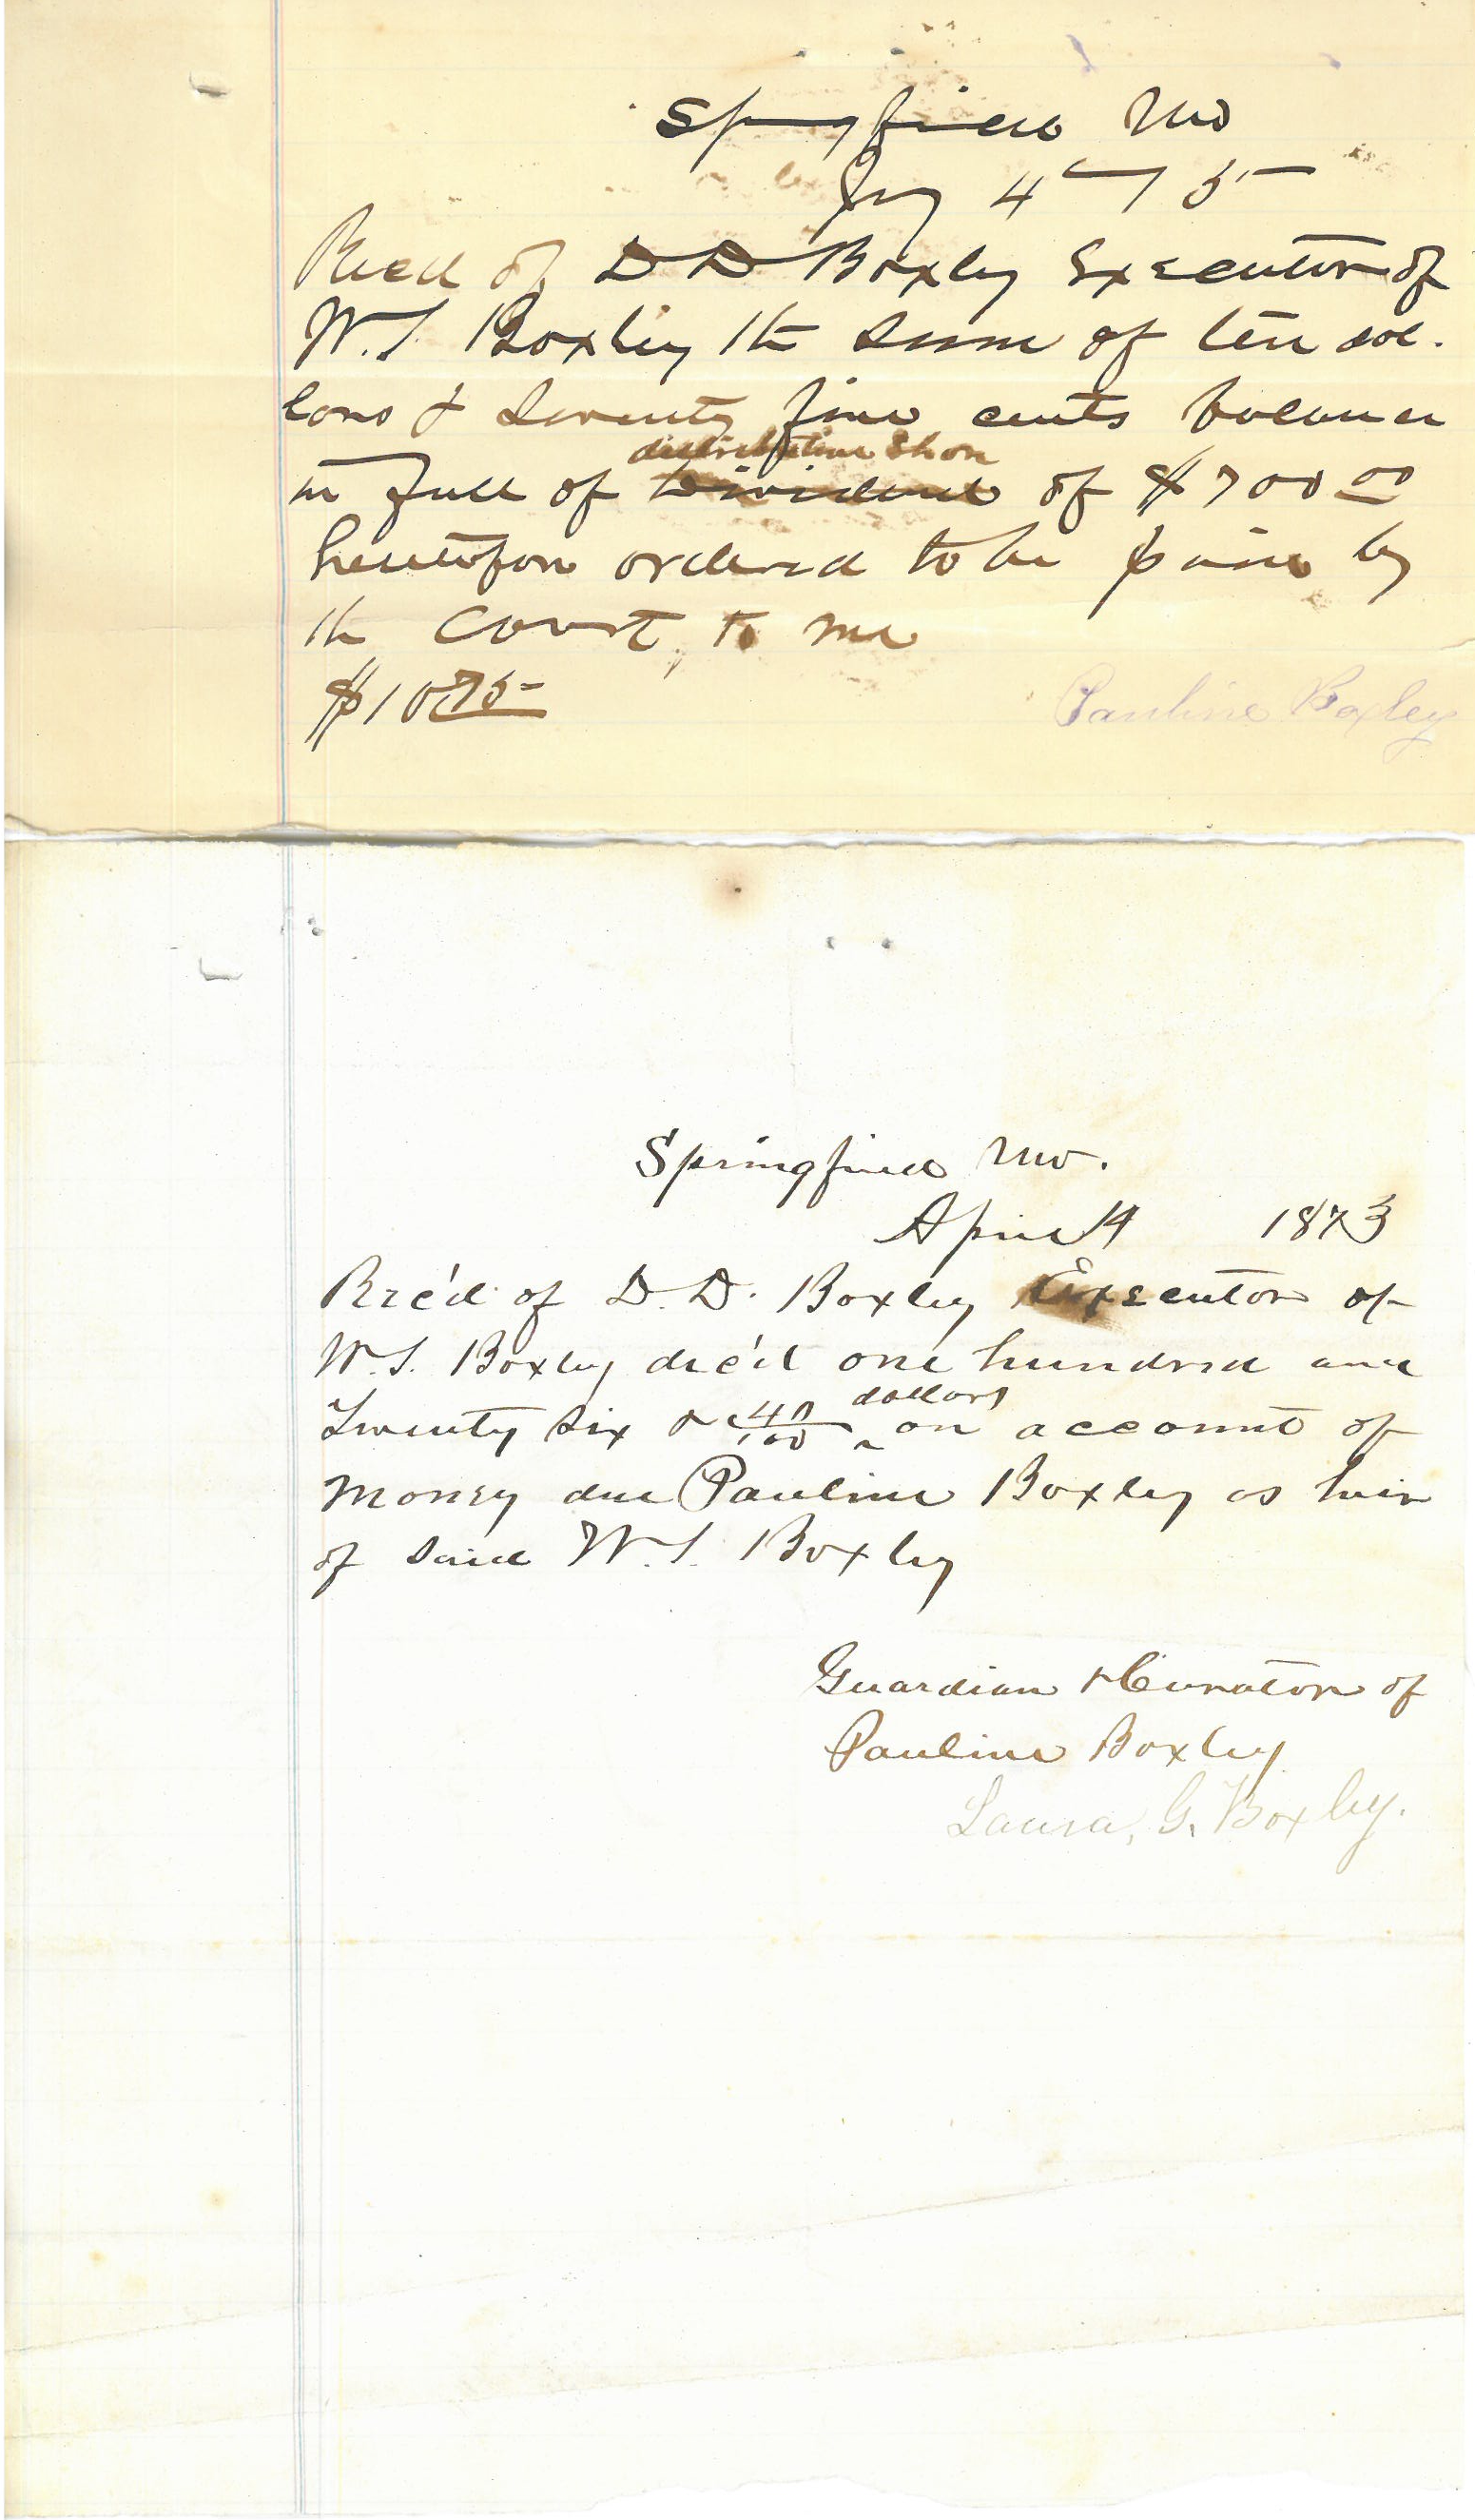 Springfield Mo
Jany 4th 75
Rec'd of D D Boxley Executor of
W. S. Boxley the sum of ten dol-
lars & seventy five cents balance
distributive share
in full of Dividend of $700 00
heretofore ordered to be paid by
the Court, to me
$10 75
Pauline Boxley
Springfield Mo.
April 4 1873
Rec'd of D. D. Boxley Executor of
W. S. Boxley dec'd one hundred and
dollars
Twenty six & 40/100 ‸ on account of
money due Pauline Boxley as heir
of said W. S. Boxley
Guardian & Curator of
Pauline Boxley
Laura, G. Boxley.